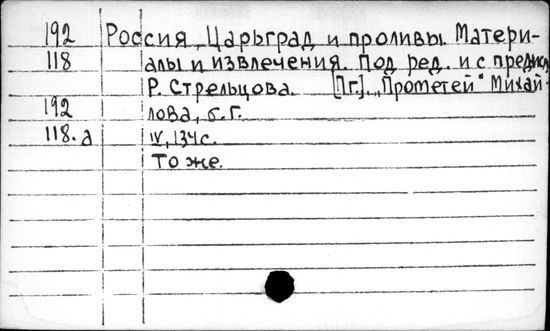 192 Россия, Царьград и проливы. Матери-
118 алы и извлечения. Под ред. и с предисл.
Р. Стрельцова. [Пг]. "Прометей" Михай-
192 лова, б.г.
118.а IV, 134 с.
То же.